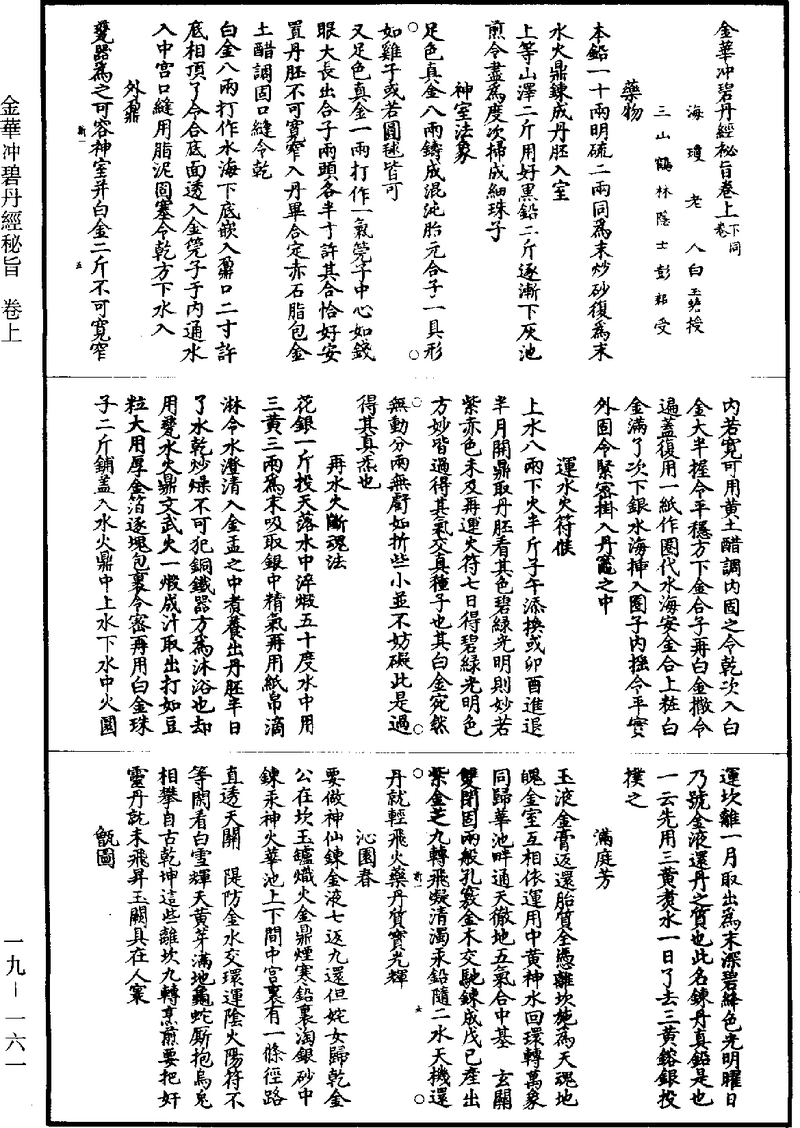 金華冲碧丹經秘旨卷上
一九－一六一
金華冲碧丹經秘旨卷上 下同卷
海瓊老人白玉蟾授
三山鶴林隱士彭耜受
藥物
本鉛一十兩明硫二兩同為末炒砂復為末
水火鼎鍊成丹胚入室
上等山澤二斤用好黑鉛二斤逐漸下灰池
煎令盡為度次掃成細珠子
神室法象
足色真金八兩鑄成混沌胎元合子一具形
如雞子或若圓毬皆可
又足色真金一兩打作一氣筦子中心如錢
眼大長出合子兩頭各半寸許其合恰好安
置丹胚不可寬窄入丹畢合定赤石脂包金
土醋調固口縫令乾
白金八兩打作水海下底嵌入鼎口二寸許
底相頂了令合底面透入金筦子于內通水
入中宮口縫用脂泥固塞令乾方下水入
外鼎
甆器為之可容神室并白金二斤不可寬窄
內若寬可用黃土醋調內固之令乾次入白
金大半握令平穩方下金合子再白金撒令
遍蓋復用一紙作圈代水海安金合上粧白
金滿了次下銀水海揷入圈子內捺令平實
外固令緊密掛入丹竈之中
運水火符候
上水八兩下火半斤子午添換或卯酉進退
半月開鼎取丹胚看其色碧綠光明則妙若
紫赤色未及再運火符七日得碧綠光明色
方妙皆過得其氣交真種子也其白金宛然
無動分兩無虧如折些小並不妨礙此是過
得其真炁也
再水火斷魂法
花銀一斤投天落水中淬煅五十度水中用
三黃三兩為末吸取銀中精氣再用紙帛滴
淋令水澄清入金盂之中煮養出丹胚半日
了水乾炒燥不可犯銅鐵器方為沐浴也却
用甆水火鼎文武火一煅成汁取出打如豆
粒大用厚金箔逐塊包裹令密再用白金珠
子二斤鋪蓋入水火鼎中上水下水中火圓
運坎離一月取出為末深碧絳色光明曜日
乃號金液還丹之質也此名鍊丹真鉛是也
一云先用三黃煑水一日了去三黃鎔銀投
撲之
滿庭芳
玉液金膏返還胎質全憑離坎施為天魂地
魄金室互相依運用中黃神水回環轉萬象
同歸華池畔通天徹地五氣合中基 玄關
雙閉固兩般孔竅金木交馳鍊成戊已產出
紫金芝九轉飛凝清濁汞鉛隨二水天機還
丹就輕飛火藥丹質寶光輝
沁園春
要做神仙鍊金液七返九還但姹女歸乾金
公在坎玉爐熾火金鼎煙寒鉛裏淘銀砂中
鍊汞神火華池上下間中宮裏有一條徑路
直透天關 隄防金水交環運陰火陽符不
等閑看白雪輝天黃芽滿地龜蛇厮抱烏兔
相攀自古乾坤這些離坎九轉烹煎要把奸
靈丹就未飛昇玉闕且在人寰
甑圖